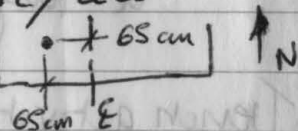 65 cm
N
65cm ℄